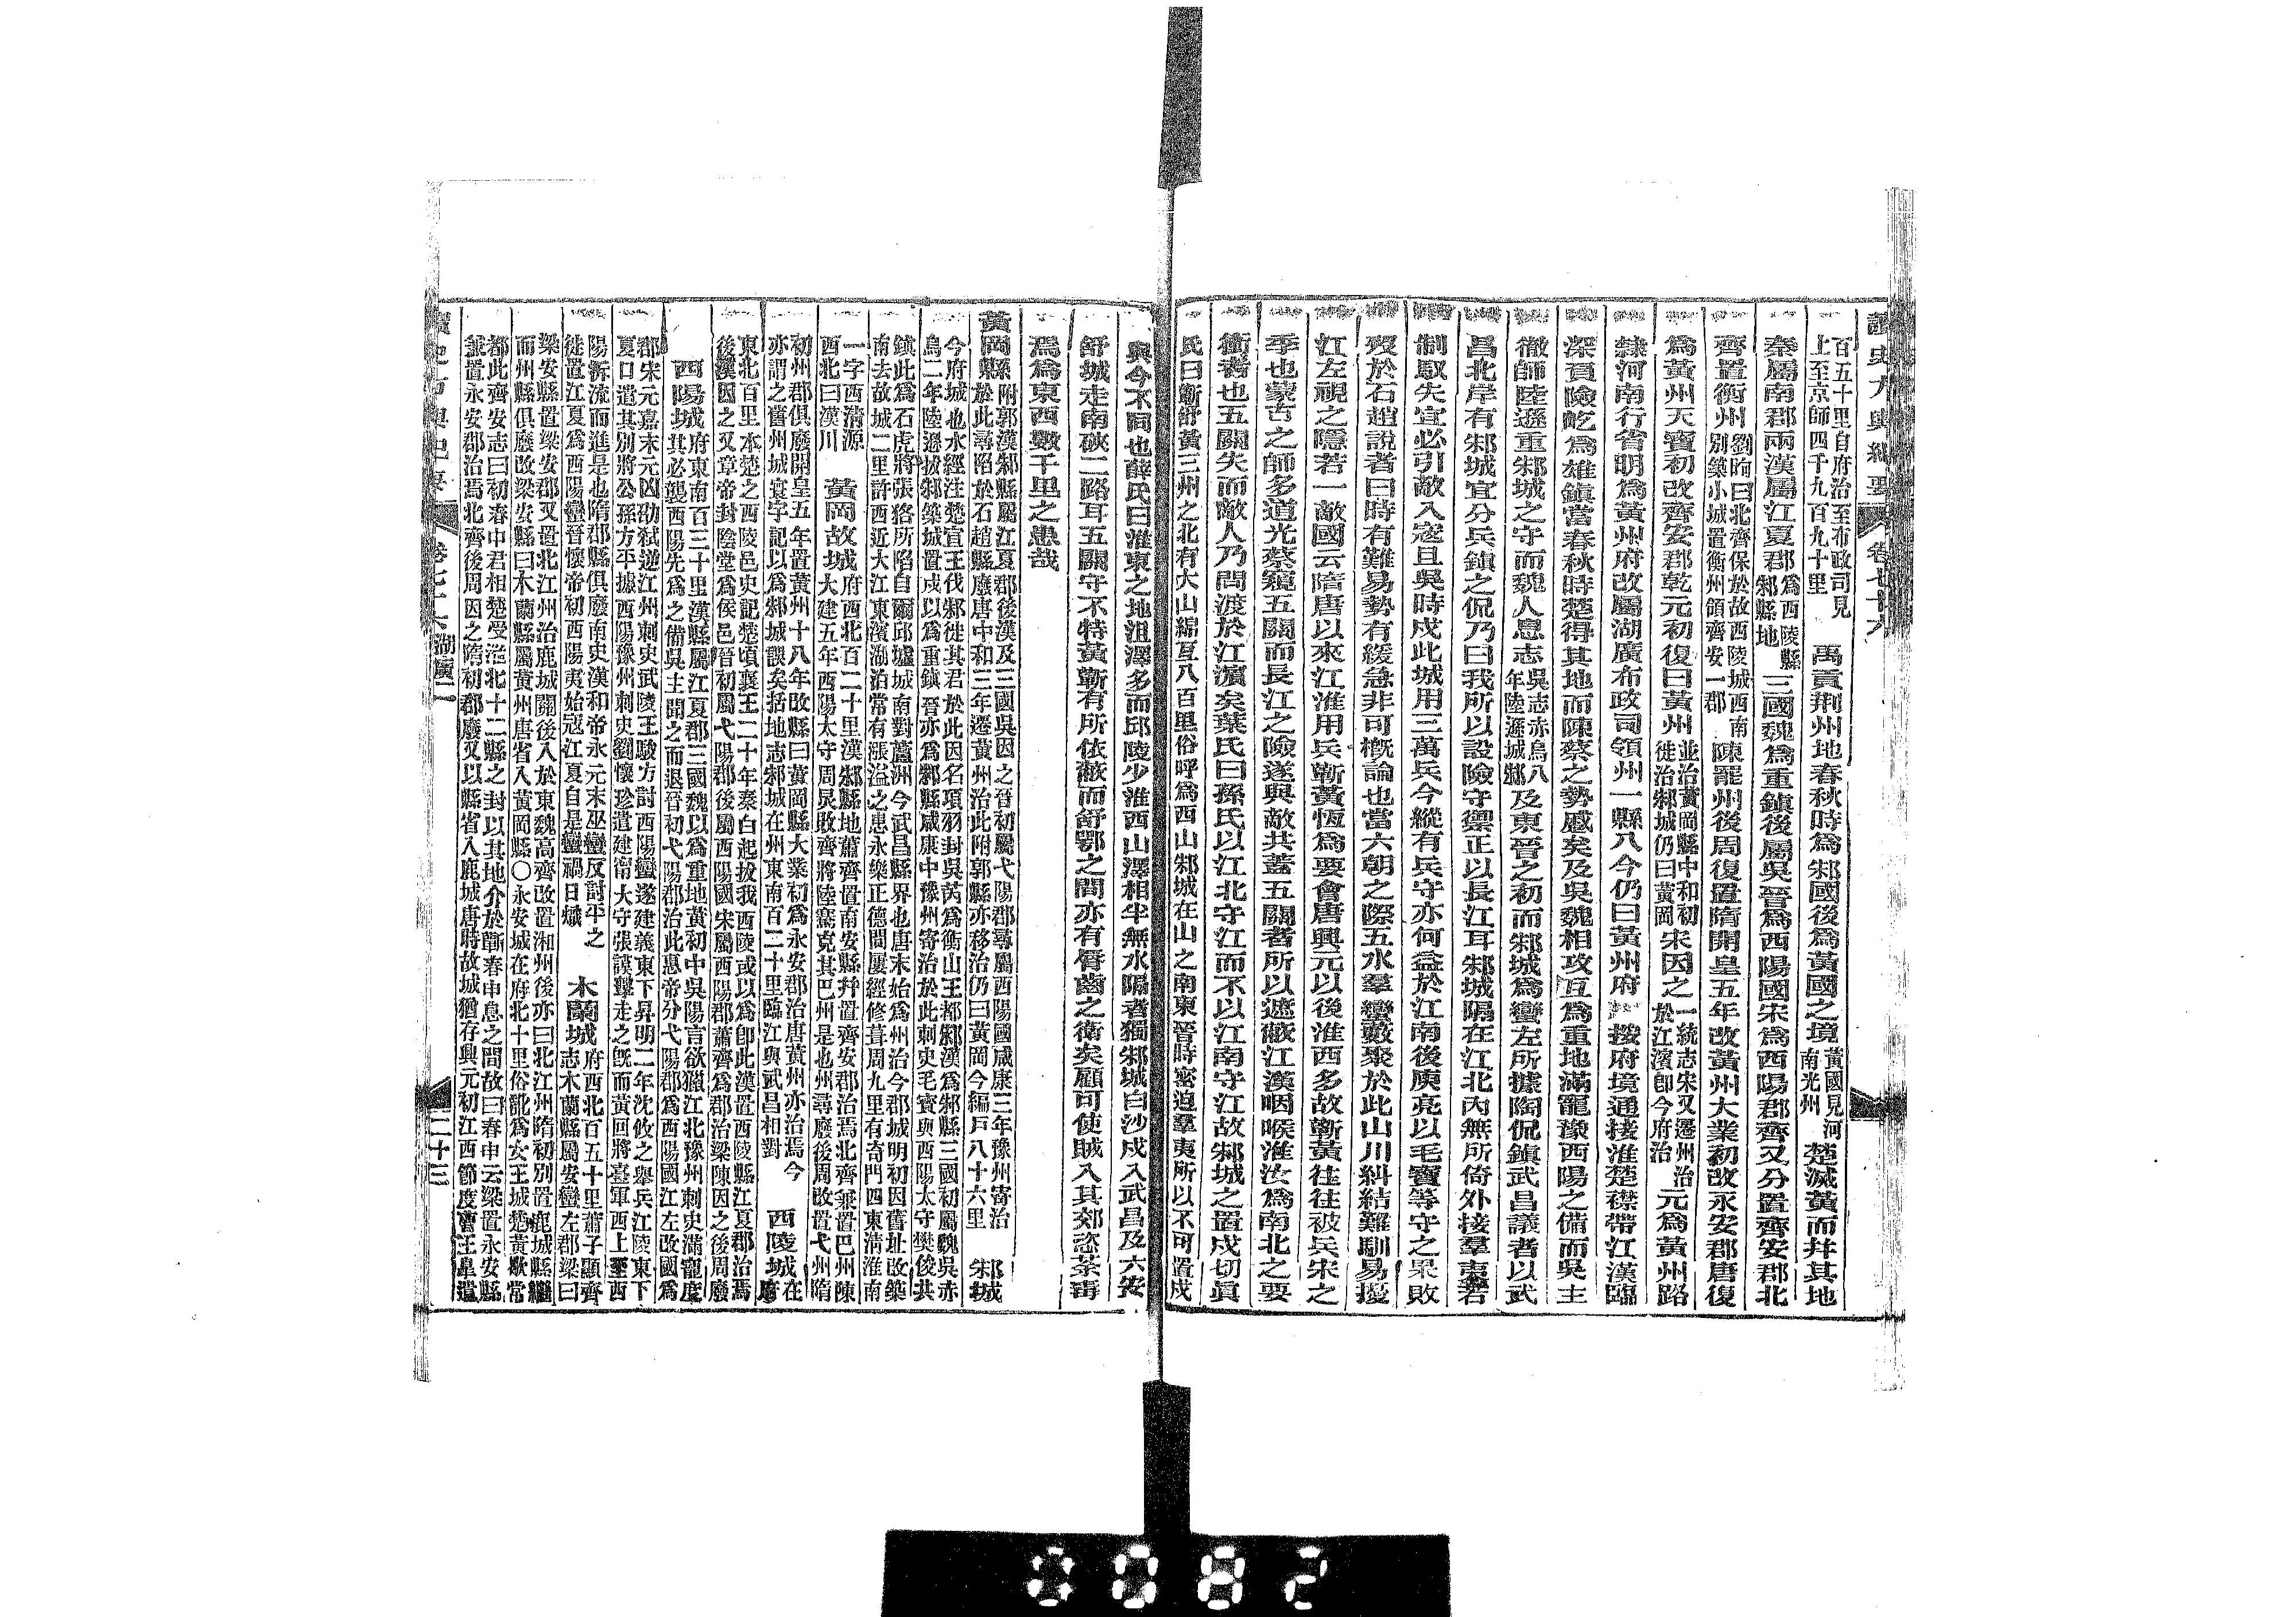 讀史方輿紀要 卷七十六
百五十里自府治至布政司見
上至京師四千九百九十里
禹貢荆州地春秋時為邾國後為黃國之境
黃國見河
南光州
楚滅黃而幷其地
秦屬南郡兩漢屬江夏郡
為西陵縣
邾縣地
三國魏為重鎮後屬吳晉為西陽國宋為西陽郡齊又分置齊安郡北
齊置衡州
劉昫曰北齊保於故西陵城西南
別築小城置衡州領齊安一郡
陳罷州後周復置隋開皇五年改黃州大業初改永安郡唐復
為黃州天寶初改齊安郡乾元初復曰黃州
並治黃岡縣中和初
徙治邾城仍曰黃岡
宋因之
一統志宋又遷州治
於江濱卽今府治
元為黃州路
隸河南行省明為黃州府改屬湖廣布政司領州一縣八今仍曰黃州府
按府境通接淮楚襟帶江漢臨
深負險屹為雄鎮當春秋時楚得其地而陳蔡之勢慼矣及吳魏相攻互為重地滿寵豫西陽之備而吳主
徹師陸遜重邾城之守而魏人息志
吳志赤烏八
年陸遜城邾
及東晉之初而邾城為蠻左所據陶侃鎮武昌議者以武
昌北岸有邾城宜分兵鎮之侃乃曰我所以設險守禦正以長江耳邾城隔在江北內無所倚外接羣夷若
制馭失宜必引敵入寇且吳時戍此城用三萬兵今縱有兵守亦何益於江南後庾亮以毛寶等守之果敗
歿於石趙說者曰時有難易勢有緩急非可槪論也當六朝之際五水羣蠻藪聚於此山川糾結難馴易擾
江左視之隱若一敵國云隋唐以來江淮用兵蘄黃恆為要會唐興元以後淮西多故蘄黃往往被兵宋之
季也蒙古之師多道光蔡窺五關而長江之險遂與敵共蓋五關者所以遮蔽江漢咽喉淮汝為南北之要
衝者也五關失而敵人乃問渡於江濱矣葉氏曰孫氏以江北守江而不以江南守江故邾城之置戍切眞
氏曰蘄舒黃三州之北有大山綿亙八百里俗呼為西山邾城在山之南東晉時密迫羣夷所以不可置戍
與今不同也薛氏曰淮東之地沮澤多而邱陵少淮西山澤相半無水隔者獨邾城白沙戍入武昌及六安
舒城走南硤二路耳五關守不特黃蘄有所依蔽而舒鄂之間亦有脣齒之衛矣顧可使賊入其郊恣荼毒
焉為東西數千里之患哉
黃岡縣
附郭漢邾縣屬江夏郡後漢及三國吳因之晉初屬弋陽郡尋屬西陽國咸康三年豫州寄治
於此尋陷於石趙縣廢唐中和三年遷黃州治此附郭縣亦移治仍曰黃岡今編戶八十六里
邾城
今府城也水經注楚宣王伐邾徙其君於此因名項羽封吳芮為衡山王都邾漢為邾縣三國初屬魏吳赤
烏二年陸遜拔邾築城置戍以為重鎮晉亦為邾縣咸康中豫州寄治於此刺史毛寶與西陽太守樊俊共
鎮此為石虎將張狢所陷自爾邱墟城南對蘆洲今武昌縣界也唐末始為州治今郡城明初因舊址改築
南去故城二里許西近大江東濱湖泊常有漲溢之患永樂正德間屢經修葺周九里有奇門四東淸淮南
一字西清源
西北曰漢川
黃岡故城
府西北百二十里漢邾縣地蕭齊置南安縣幷置齊安郡治焉北齊兼置巴州陳
大建五年西陽太守周炅敗齊將陸騫克其巴州是也州尋廢後周改置弋州隋
初州郡俱廢開皇五年置黃州十八年改縣曰黃岡縣大業初為永安郡治唐黃州亦治焉今
亦謂之舊州城寰宇記以為邾城誤矣括地志邾城在州東南百二十里臨江與武昌相對
西陵城
府在
東北百里本楚之西陵邑史記楚頃襄王二十年秦白起拔我西陵或以為卽此漢置西陵縣江夏郡治焉
後漢因之又章帝封陰堂為侯邑晉初屬弋陽郡後屬西陽國宋屬西陽郡蕭齊為郡治梁陳因之後周廢
西陽城
府東南百三十里漢縣屬江夏郡三國魏以為重地黃初中吳陽言欲獵江北豫州刺史滿寵度
其必襲西陽先為之備吳主聞之而退晉初弋陽郡治此惠帝分弋陽郡為西陽國江左改國為
郡宋元嘉末元凶劭弒逆江州刺史武陵王駿方討西陽蠻遂建義東下昇明二年沈攸之舉兵江陵東下
夏口遣其別將公孫方平據西陽豫州刺史劉懷珍遣建甯太守張謨擊走之旣而黃回將臺軍西上至西
陽泝流而進是也隋郡縣俱廢南史漢和帝永元末巫蠻反討平之
徙置江夏為西陽蠻晉懷帝初西陽夷始寇江夏自是蠻禍日熾
木蘭城
府西北百五十里蕭子顯齊
志木蘭縣屬安蠻左郡梁曰
梁安縣置梁安郡又置北江州治鹿城關後入於東魏高齊改置湘州後亦曰北江州隋初別置鹿城縣繼
而州縣俱廢改梁安縣曰木蘭縣屬黃州唐省入黃岡縣○永安城在府北十里俗訛為女王城楚黃歇常
都此齊安志曰初春申君相楚受淮北十二縣之封以其地介於蘄春申息之間故曰春申云梁置永安縣
兼置永安郡治焉北齊後周因之隋初郡廢又以縣省入鹿城唐時故城猶存興元初江西節度曹王皐遣
讀史方輿紀要 卷七十六 湖廣二 二十三
0082